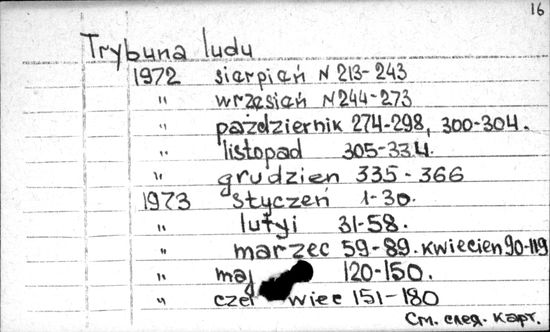 16
Trybuna ludu
1972 sierpień N 213-243
" wrzesień N 244-273
" październik 274-298, 300-304.
" listopad 305-334.
" grudzien 335-366
1973 styczeń 1-30.
" lutyi 31-58.
" marzec 59-89. kwiecien 90-119
" maj 120-150.
" czer wiec 151-180
См. след. карт.